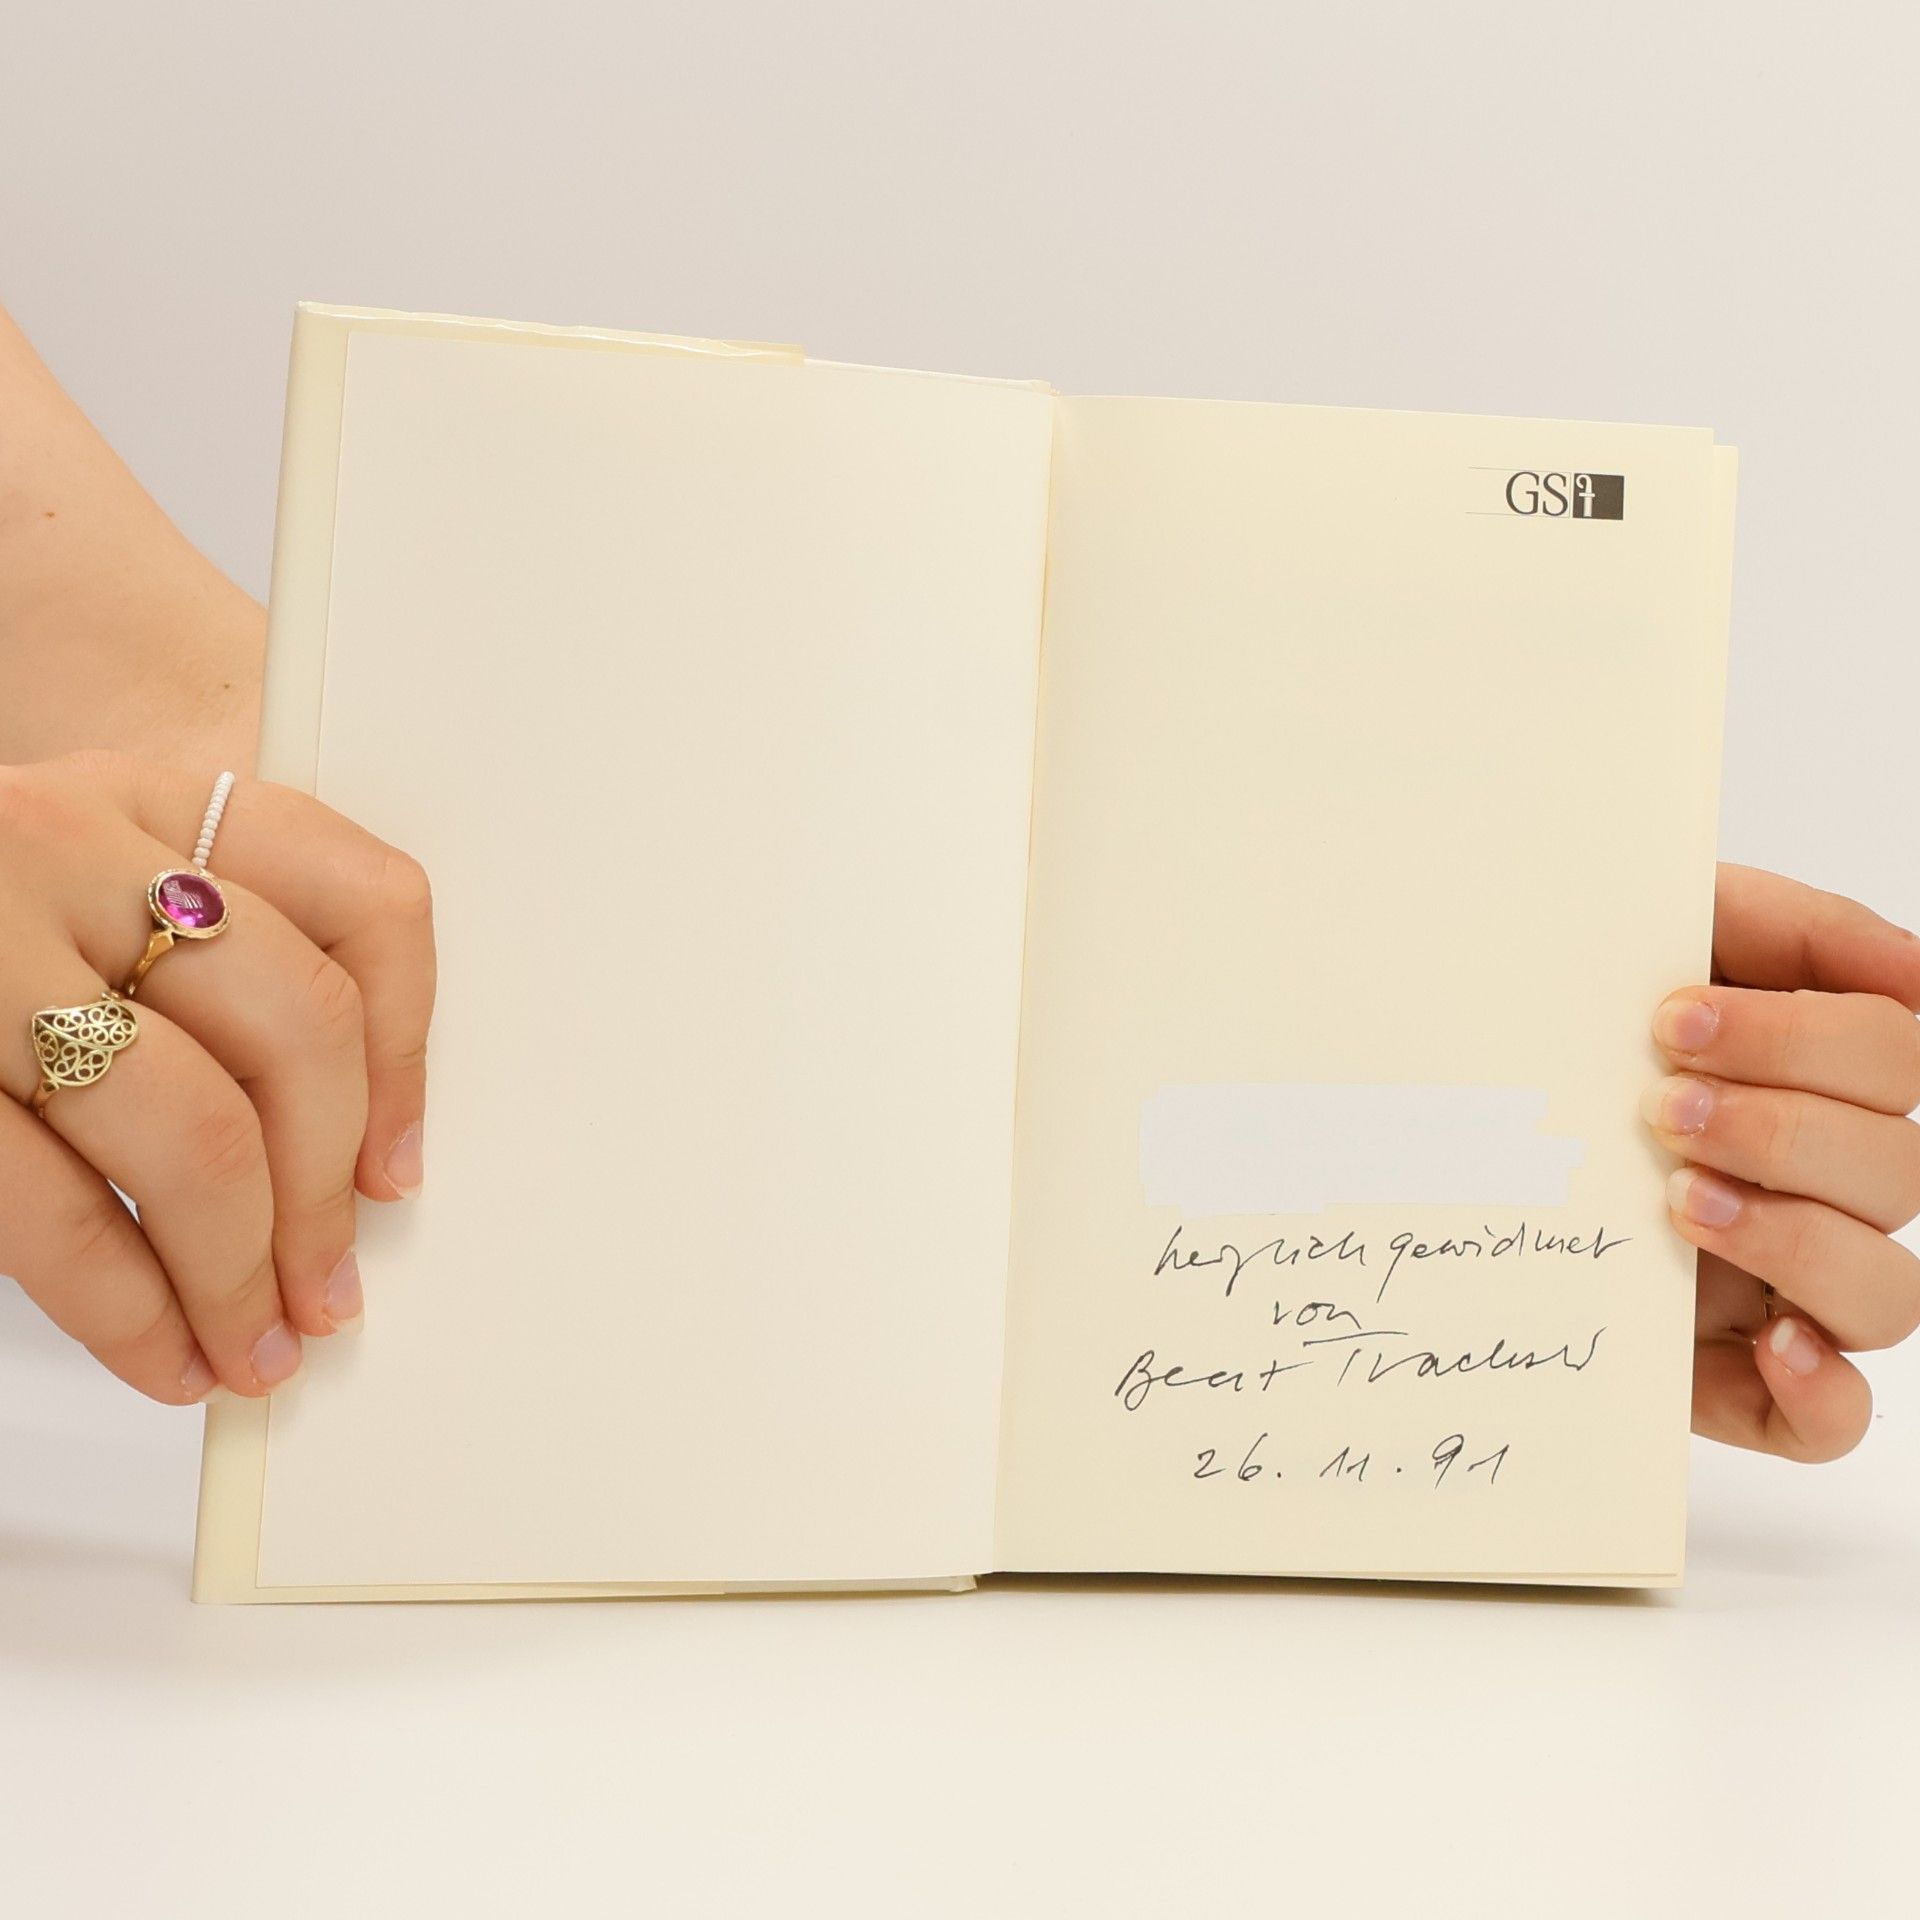 GSf
herzlich gewidmet
von
Beat Trachsler
26. 11. 91